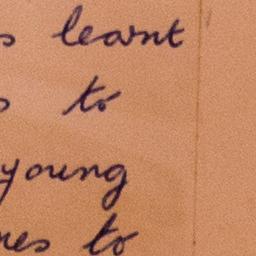 s learnt
to
young
es to